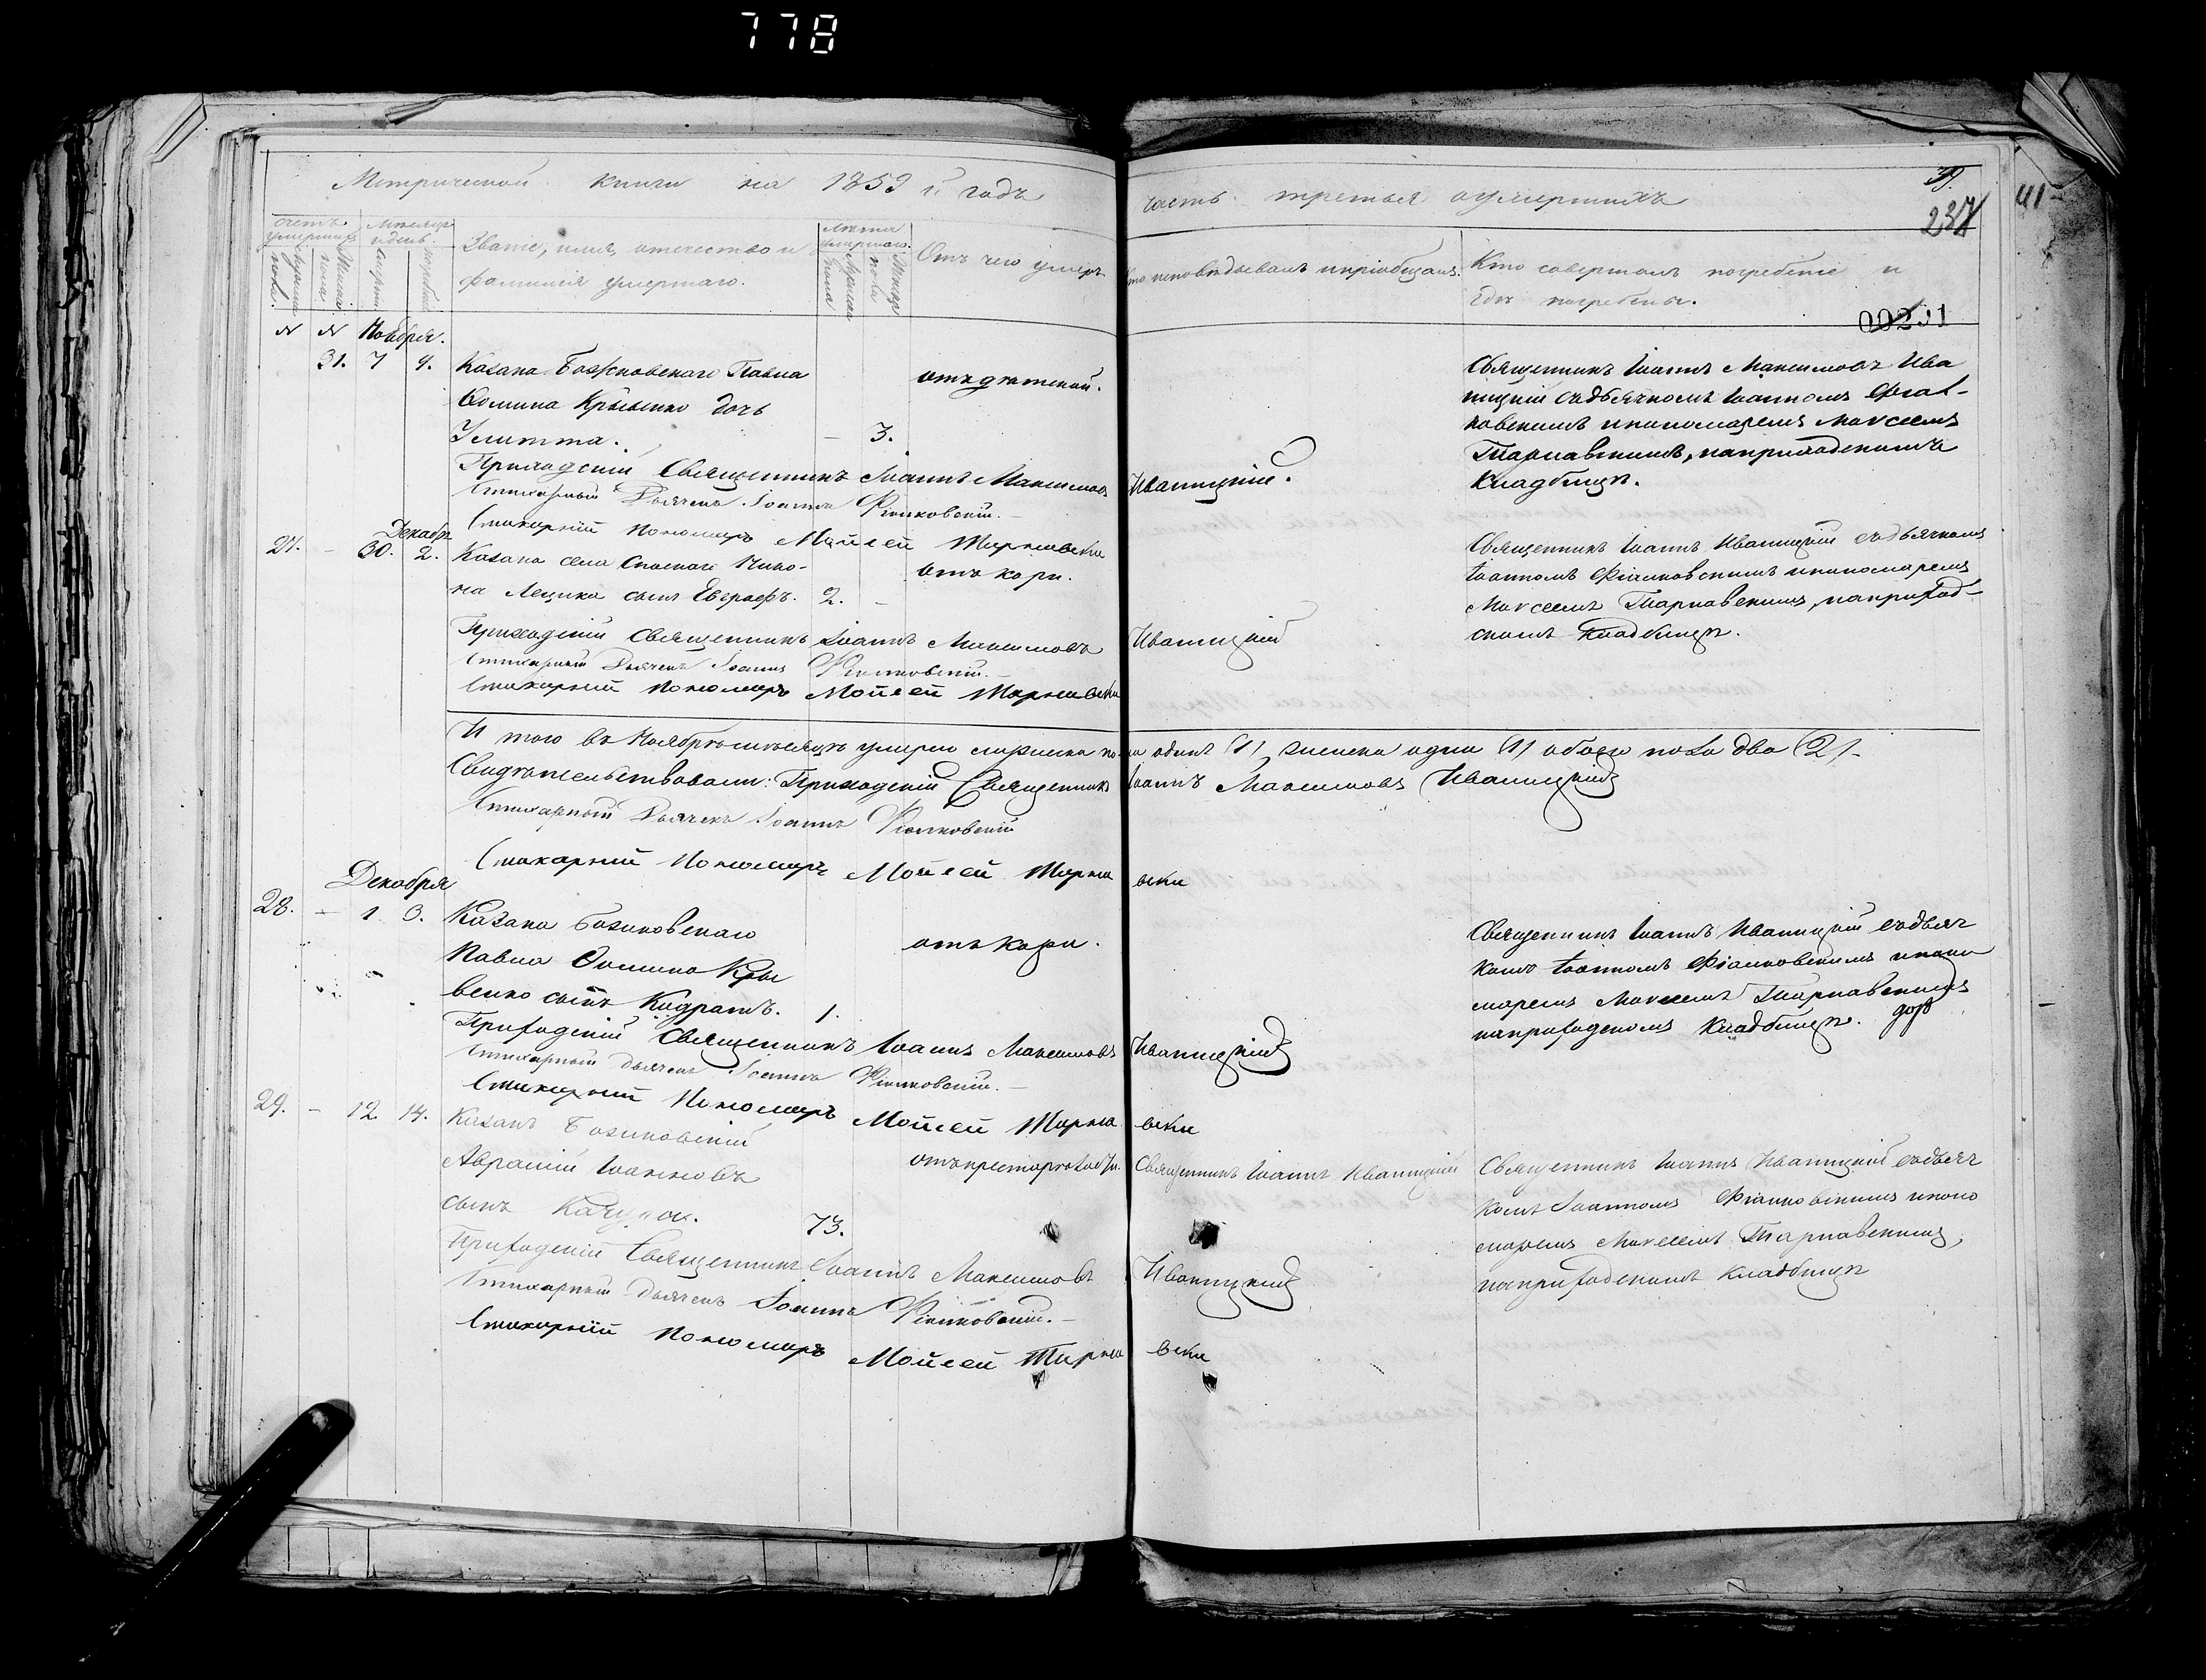 778
Метрической книги на 1859 й годъ
часть третья оумершихъ
39.
237
41
Счетъ умершихъ
Мѣсяцъ и день.
Званіе, имя, отечество и
фамилія умершаго.
Лѣта умершаго.
Отъ чего умеръ
Кто исповѣдывалъ и пріобщалъ.
Кто совершалъ погребеніе и
гдѣ погребены.
мужеска пола
женска пола
мужеска пола
женска пола
00231
N N Ноября.
31. 7 9. Козака Божковскаго Павла
Ѳомина Крывенко дочь
Улитта. – 3.
отъ дѣтской.
Священникъ Іоаннъ Максимовъ Ива
ницкій съ дьячкомъ Іоанномъ Фіал-
ковскимъ и пономаремъ Моѵсеемъ
Тарнавскимъ, на приходскомъ
Кладбищѣ.
Приходскій Священникъ Іоаннъ Максимовъ Иваницкій.
Стихарный Дьячекъ Іоаннъ Фіялковскій.–
Стихарный Пономарь Мойсей Тарнавски
Декабр
27. – 30. 2. Козака села
на Лещика сынъ Евграфъ. 2. –
отъ кори.
Священникъ Іоаннъ Иваницкій съ дьячкомъ
Іоанномъ Фіалковскимъ и пономаремъ
Моѵсеемъ Тарнавскимъ, на приход-
скомъ Кладбищѣ.
Приходскій Священникъ Іоаннъ Максимовъ Иваницкій
Стихарный Дьячекъ Іоаннъ Фіялковскій.–
Стихарный Пономарь Мойсей Тарнавски
И того въ Ноябрѣ мѣсяцѣ умерло мужеска пола одинъ (1), женска одна (1) обоего пола два (2).
Свидѣтельствовали: Приходскій Священникъ Іоаннъ Максимовъ Иваницкій
Стихарный Дьячекъ Іоаннъ Фіялковскій
Стихарный Пономарь Мойсей Тарнавски
Декабря
28. – 1. 3. Козака Божковскаго
Павла Ѳомина Кры
венко сынъ Кодратъ. 1.
отъ кори.
Священникъ Іоаннъ Иваницкій съ дьяч
комъ Іоанномъ Фіалковскимъ и поно
маремъ Моѵсеемъ Тарнавскимъ
на приходскомъ Кладбищѣ.
Приходскій Священникъ Іоаннъ Максимовъ Иваницкій
Стихарный Дьячекъ Іоаннъ Фіялковскій.–
Стихарный Пономарь Мойсей Тарнавски
29. – 12. 14. Козакъ Божковскій
Аврамій Іоанновъ
сынъ 73.
Священникъ Іоаннъ Иваницкій
Священникъ Іоаннъ Иваницкій съ дьяч
комъ Іоанномъ Фіалковскимъ и поно
маремъ Моѵсеемъ Тарнавскимъ,
на приходскомъ Кладбищѣ
Приходскій Священникъ Іоаннъ Максимовъ Иваницкій
Стихарный Дьячекъ Іоаннъ Фіялковскій.–
Стихарный Пономарь Мойсей Тарнавски